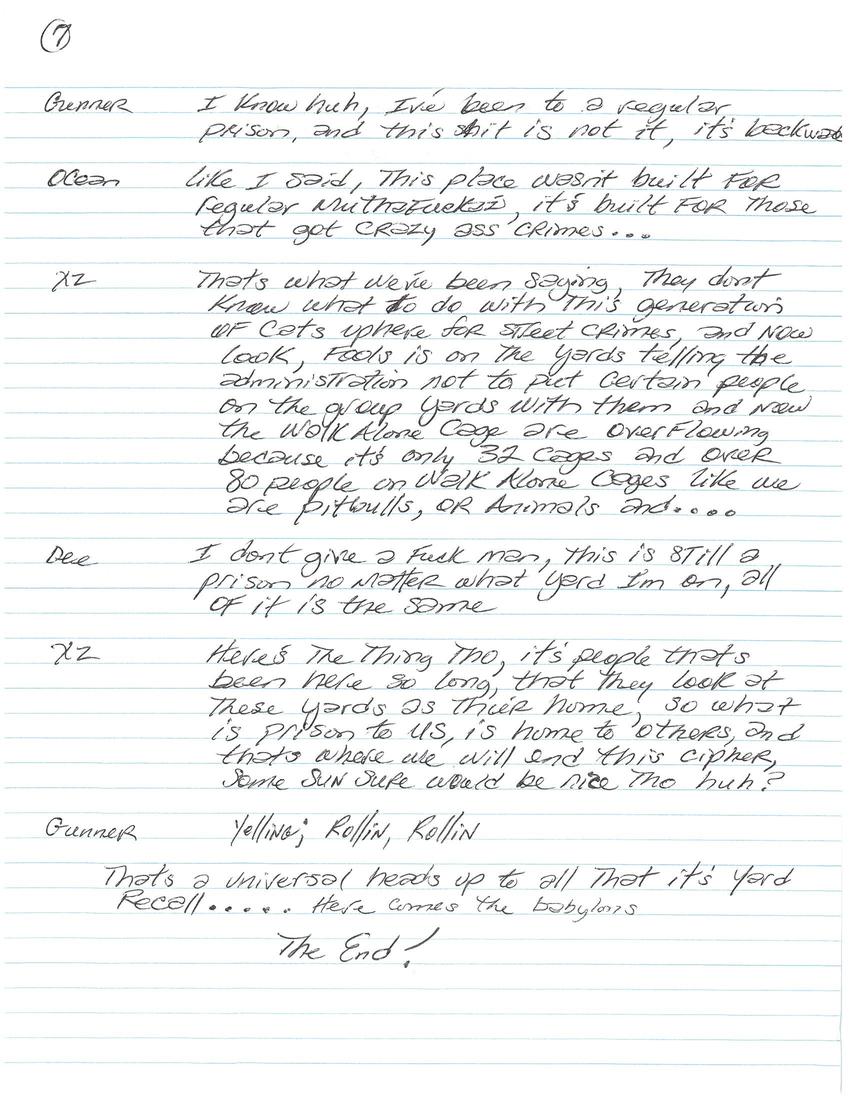 7
Gunner I Know huh, I've been to a regular
prison, and this shit is not it, it's backwa
Ocean like I said, This place wasn't built FOR
regular Muthafuckaz, it's built FOR Those
that got CRAZY ass CRimes...
XZ Thats what we've been saying, They dont
Know what to do with This generation
OF Cats uphere for STReet CRimes, and NOW
look, Fools is on The yards telling the
administration not to put Certain people
on the group yards with them and Now
the Walk Alone Cage are OverFlowing
because it's only 32 Cages and OVER
80 people on Walk Alone Cages like we
are pitbulls, OR Animals and....
Dee I dont give a Fuck man, this is STill a
prison no MatteR what yard I'm on, all
OF it is the same
XZ Here's The Thing Tho, it's people that's
been here so long, that They look at
These yards as Their home, so what
is prison to US, is home to others, and
thats where we will end this cipher,
Some SUN SURE would be nice Tho huh?
Gunner Yelling; Rollin, Rollin
That's a universal heads up to all That it's Yard
Recall..... Here comes the babylons
The End!